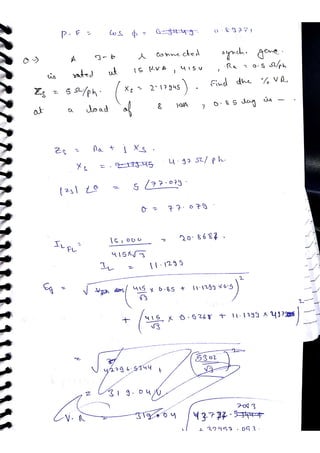 P.F = Cos φ = 0.8377,
Q→) A 3-Φ λ connected synch. gene.
is rated at 15 KVA, 415V, Ra = 0.5 Ω/ph
Zs = 5 Ω/ph. (Xs = 2.17945) Find the % VR.
at a load of 8 0.85 lag is —.
Zs = Ra + j Xs.
Xs = 4.97 Ω/ph.
|Zs| ∠θ = 5 ∠77.079
θ = 77.079
IL FL = 15,000 / 415×√3 = 20.8682.
IL = 11.1299
Eg = √(415/√3 × 0.85 + 11.1299×0.5)²
+ (415/√3 × 0.5268 + 11.1299 ×
= √42796.5344 + 5302/√3
= 319.04 V
V.R 319.04 √43777.
+ 32453.053.